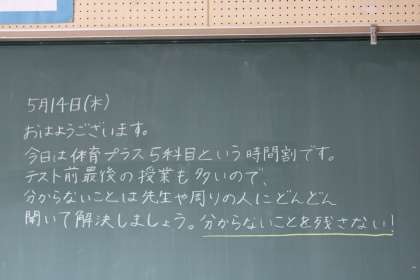 5月14日(木)
おはようございます。
今日は体育プラス5科目という時間割です。
テスト前最後の授業も多いので、
分からないことは先生や周りの人にどんどん
聞いて解決しましょう。分からないことを残さない!